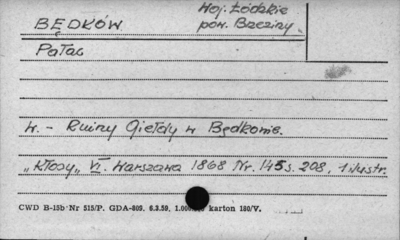 BĘDKÓW
Woj. Łódzkie
pow. Brzeziny.
Pałac
W. - Ruiny Giełdy w Będkowie.
„Kłosy„ VI. Warszawa 1868 Nr. 145 s. 208, 1 ilustr.
CWD B-15b Nr 515/P. GDA-809. 6.3.59, karton 180/V.